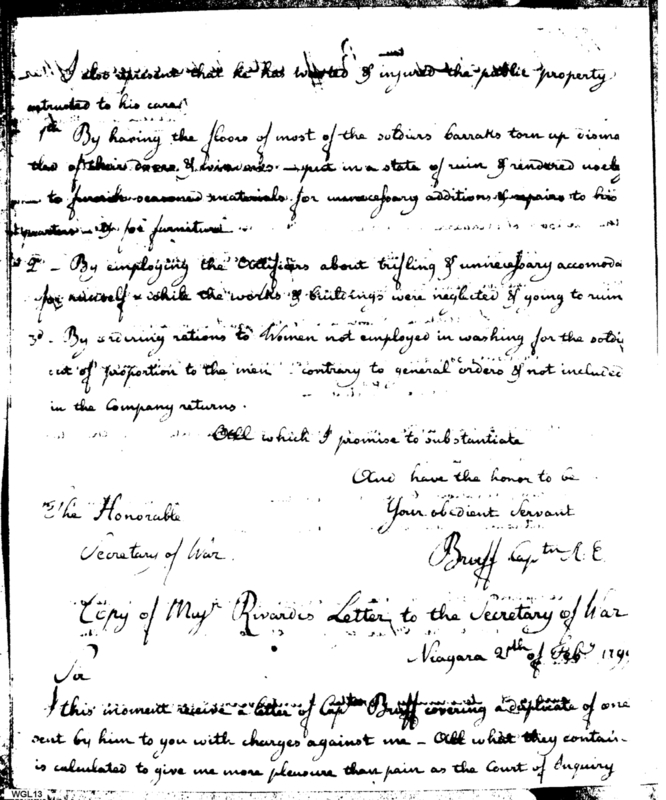 I also represent that he has wasted & injured the public property
entrusted to his care
1th By having the floors of most of the soldiers barraks torn up disma
tled of their doors & windows - put in a state of ruin & rendered usele
to furnish seasoned materials for unnecessary additions & repairs to his
quarters - & for furniture
2d - By employing the Artificers about trifling & unnecessary accomoda
for himself & while the works & buildings were neglected & going to ruin
3d - By ordering rations to Women not employed in washing for the soldi
out of proportion to the men contrary to general orders & not included
in the Company returns.
All which I promise to substantiate
And have the honor to be
The Honorable
Your obedient Servant
Secretary of War.
Bruff Captn A. E.
Copy of Majr Rivardis Letter to the Secretary of War
Niagara of Feby
Sir
I this moment receive a letter of Captn Bruff covering a duplicate of one
sent by him to you with charges against me - All what they contain
is calculated to give me more pleasure than pain as the Court of Enquiry
WGL13